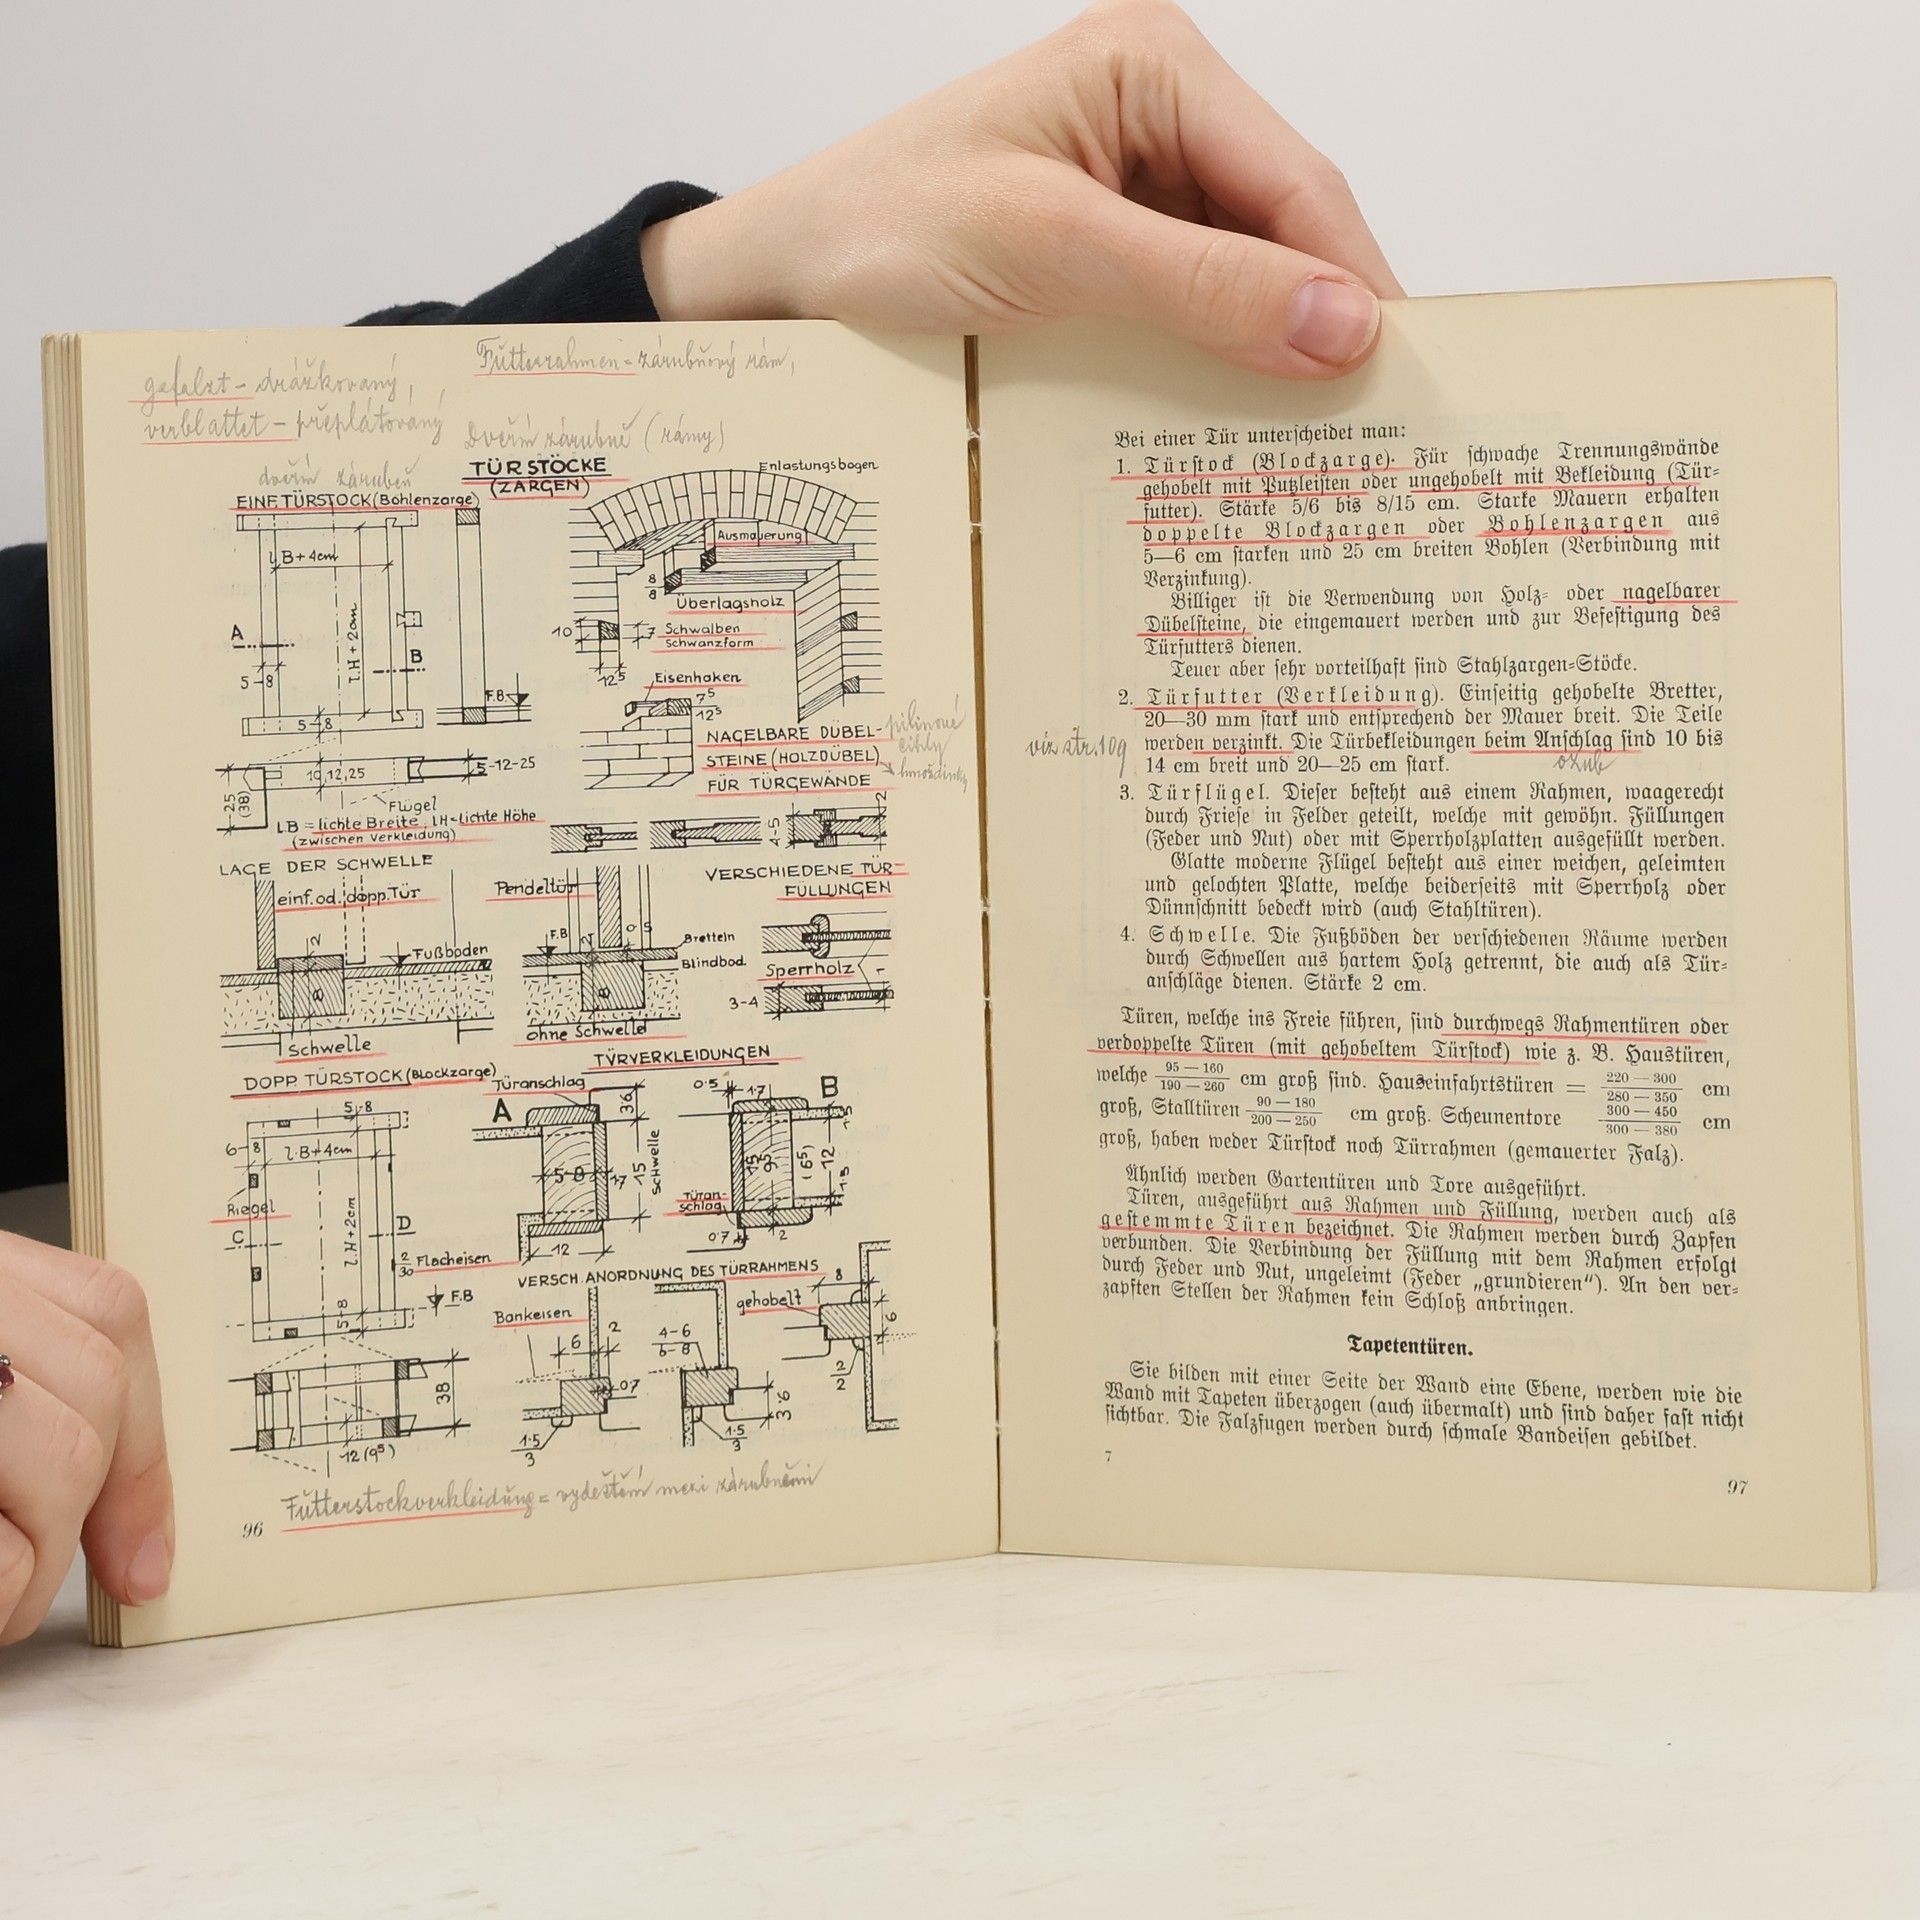 gefalzt - drážkovaný,
verblattet - přeplátovaný
Futterrahmen = zárubňový rám,
Dveřní zárubně (rámy)
dveřní zárubeň
TÜRSTÖCKE
(ZARGEN)
Enlastungsbogen
EINF. TÜRSTOCK (Bohlenzarge)
l.B + 4cm
Ausmauerung
8
8
Überlagsholz
l.H + 2cm
A
B
10
7
Schwalben
schwanzform
12⁵
5-8
Eisenhaken
7⁵
12⁵
F.B.
5-8
NAGELBARE DÜBEL-
STEINE (HOLZDÜBEL)
FÜR TÜRGEWÄNDE
pilinové
cihly
hmoždinky
10,12,25
5-12-25
25
(38)
Flügel
LB = lichte Breite, LH = lichte Höhe
(zwischen Verkleidung)
4-5
2
LAGE DER SCHWELLE
einf. od. dopp. Tür
Pendeltür
VERSCHIEDENE TÜR-
FÜLLUNGEN
2
Fußboden
F.B
Bretteln
Blindbod.
8
8
Sperrholz
3-4
1
Schwelle
ohne Schwelle
TÜRVERKLEIDUNGEN
DOPP. TÜRSTOCK (Blockzarge)
Türanschlag
A
3·6
0·5
1·7
B
5-8
6-8
l.B + 4cm
5-8
1·7
15
Schwelle
(6⁵)
12
Riegel
l.H + 2cm
Türan-
schlag
C
D
2
30
Flacheisen
12
0·7
2
VERSCH. ANORDNUNG DES TÜRRAHMENS
F.B
5-8
Bankeisen
gehobelt
8
6
2
4-6
6-8
6
0·7
2
2
38
3·6
12 (9⁵)
1·5
3
1·5
3
Futterstockverkleidung = vydeštění mezi zárubněmi
96
Bei einer Tür unterscheidet man:
1. Türstock (Blockzarge). Für schwache Trennungswände
gehobelt mit Putzleisten oder ungehobelt mit Bekleidung (Tür-
futter). Stärke 5/6 bis 8/15 cm. Starke Mauern erhalten
doppelte Blockzargen oder Bohlenzargen aus
5—6 cm starken und 25 cm breiten Bohlen (Verbindung mit
Verzinkung).
Billiger ist die Verwendung von Holz- oder nagelbarer
Dübelsteine, die eingemauert werden und zur Befestigung des
Türfutters dienen.
Teuer aber sehr vorteilhaft sind Stahlzargen-Stöcke.
2. Türfutter (Verkleidung). Einseitig gehobelte Bretter,
20—30 mm stark und entsprechend der Mauer breit. Die Teile
viz str. 109
werden verzinkt. Die Türbekleidungen beim Anschlag sind 10 bis
14 cm breit und 20—25 cm stark.
ozub
3. Türflügel. Dieser besteht aus einem Rahmen, waagerecht
durch Friese in Felder geteilt, welche mit gewöhn. Füllungen
(Feder und Nut) oder mit Sperrholzplatten ausgefüllt werden.
Glatte moderne Flügel besteht aus einer weichen, geleimten
und gelochten Platte, welche beiderseits mit Sperrholz oder
Dünnschnitt bedeckt wird (auch Stahltüren).
4. Schwelle. Die Fußböden der verschiedenen Räume werden
durch Schwellen aus hartem Holz getrennt, die auch als Tür-
anschläge dienen. Stärke 2 cm.
Türen, welche ins Freie führen, sind durchwegs Rahmentüren oder
verdoppelte Türen (mit gehobeltem Türstock) wie z. B. Haustüren,
welche 95 — 160 / 190 — 260 cm groß sind. Hauseinfahrtstüren = 220 — 300 / 280 — 350 cm
groß, Stalltüren 90 — 180 / 200 — 250 cm groß. Scheunentore 300 — 450 / 300 — 380 cm
groß, haben weder Türstock noch Türrahmen (gemauerter Falz).
Ähnlich werden Gartentüren und Tore ausgeführt.
Türen, ausgeführt aus Rahmen und Füllung, werden auch als
gestemmte Türen bezeichnet. Die Rahmen werden durch Zapfen
verbunden. Die Verbindung der Füllung mit dem Rahmen erfolgt
durch Feder und Nut, ungeleimt (Feder „grundieren“). An den ver-
zapften Stellen der Rahmen kein Schloß anbringen.
Tapetentüren.
Sie bilden mit einer Seite der Wand eine Ebene, werden wie die
Wand mit Tapeten überzogen (auch übermalt) und sind daher fast nicht
sichtbar. Die Falzfugen werden durch schmale Bandeisen gebildet.
7
97